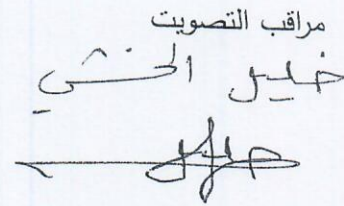 مراقب التصويت
خليل الخشي